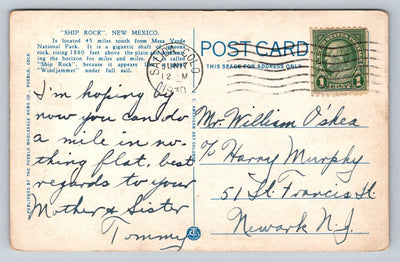 "SHIP ROCK", NEW MEXICO.
Is located 45 miles south from Mesa Verde
National Park. It is a gigantic shaft of
rock, rising 1860 feet above the plain and
the horizon for miles and miles.
Ship Rock", because it appears like a
"Windjammer" under full sail.
POST CARD
THIS SPACE FOR ADDRESS ONLY
COLO.
12 M
1930
UNITED STATES POSTAGE
1 CENT 1
I'm hoping by
now you can do
a mile in no-
thing flat, best
regards to your
Mother & Sister
Tommy
Mr. William O'shea
℅ Harry Murphy
51 St. Francis St
Newark N.J.
PUBLISHED BY THE PUEBLO WHOLESALE NEWS CO., PUEBLO, COLO.